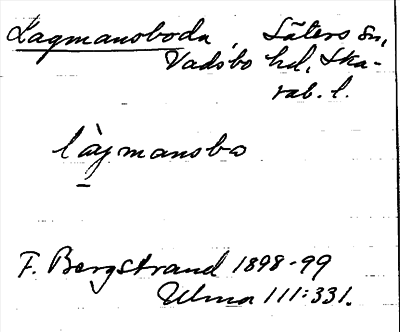 Lagmansboda, Säters sn,
Vadsbo hd, Ska-
rab. l.
làgmansbo
F. Bergstrand 1898-99
Ulma 111:331.